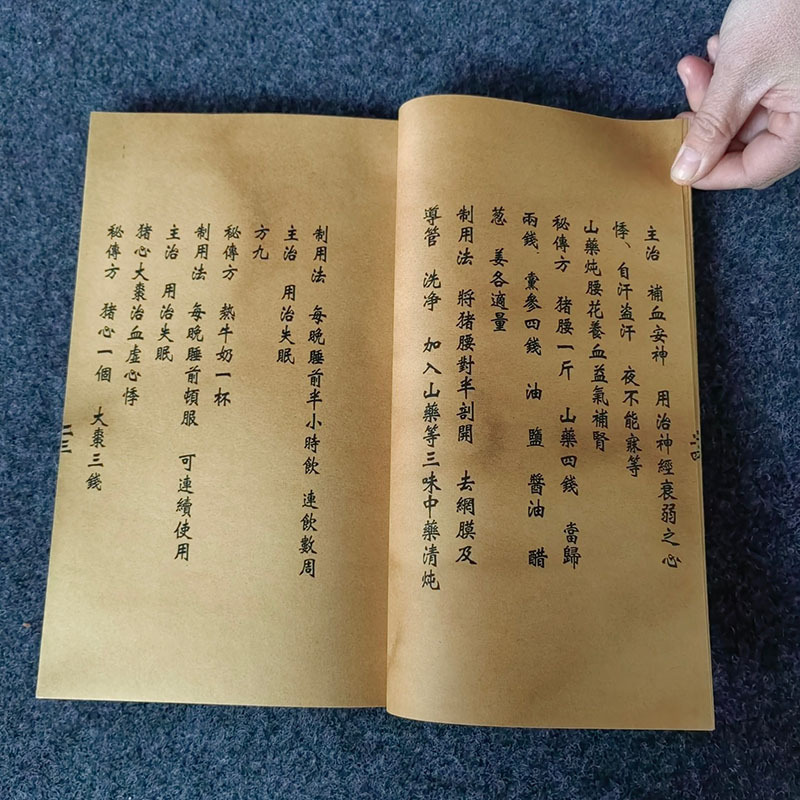 主治 補血安神 用治神經衰弱之心
悸、自汗盗汗 夜不能寐等
山藥炖腰花養血益氣補腎
秘傳方 猪腰一斤 山藥四錢 當歸
兩錢 黨參四錢 油 鹽 醬油 醋
葱 姜各適量
制用法 將猪腰對半剖開 去網膜及
導管 洗净 加入山藥等三味中藥清炖
制用法 每晚睡前半小時飲 連飲數周
主治 用治失眠
方九
秘傳方 熱牛奶一杯
制用法 每晚睡前頓服 可連續使用
主治 用治失眠
猪心大棗治血虛心悸
秘傳方 猪心一個 大棗三錢
二三